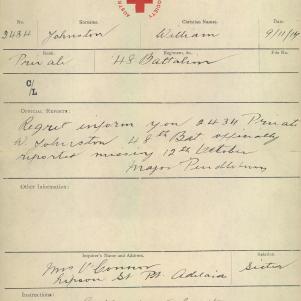 SOCIETY, AUSTR
No. Surname. Christian Names. Date.
2434 Johnston William 9/11/17
Rank. Regiment, &c. File No.
Private 48 Battalion
C/L
OFFICIAL REPORTS:
Regret inform you 2434 Private
W Johnston 48th Bat officially
reported missing 12th October
Major
Other Information:
Inquirer's Name and Address. Relation.
Mrs O'Connor Sister
Lipson St Pt. Adelaide
Instructions: